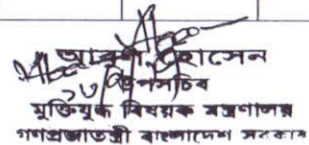 হোসেন
উপসচিব
মুক্তিযুদ্ধ বিষয়ক মন্ত্রণালয়
গণপ্রজাতন্ত্রী বাংলাদেশ সরকার